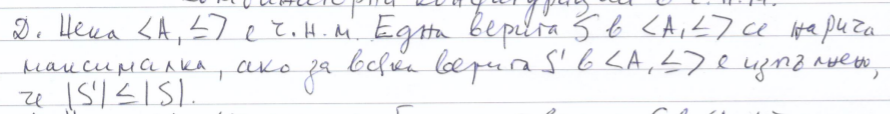 Д. Нека <A, ≤> е ч.н.м. Една верига S в <A, ≤> се нарича
максимална, ако за всяка верига S' в <A, ≤> е изпълнено,
че |S'| ≤ |S|.